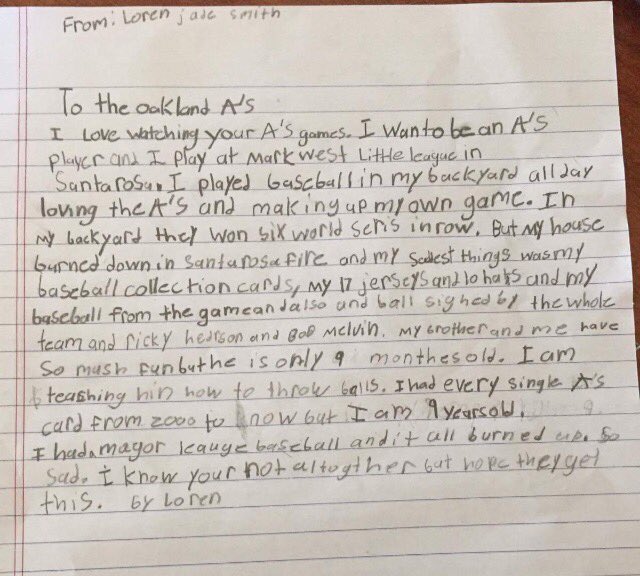 From: Loren jade smith
To the oakland A's
I Love watching your A's games. I Wanto be an A's
player and I play at Mark west Little league in
Santarosa. I played baseball in my backyard all day
loving the A's and making up my own game. In
my backyard they won six world seris in row. But my house
burned down in santarosa fire and my sadest things was my
baseball collection cards, my 17 jerseys and 10 hats and my
baseball from the game and also and ball signed by the whole
team and ricky hederson and Bob Melvin. my brother and me have
So mush fun but he is only 9 monthes old. I am
teashing hin how to throw balls. I had every single A's
card from 2000 to now but I am 9 years old.
I had a mayor leauge baseball and it all burned up. so
sad. I know your not altogther but hope they get
this. by Loren